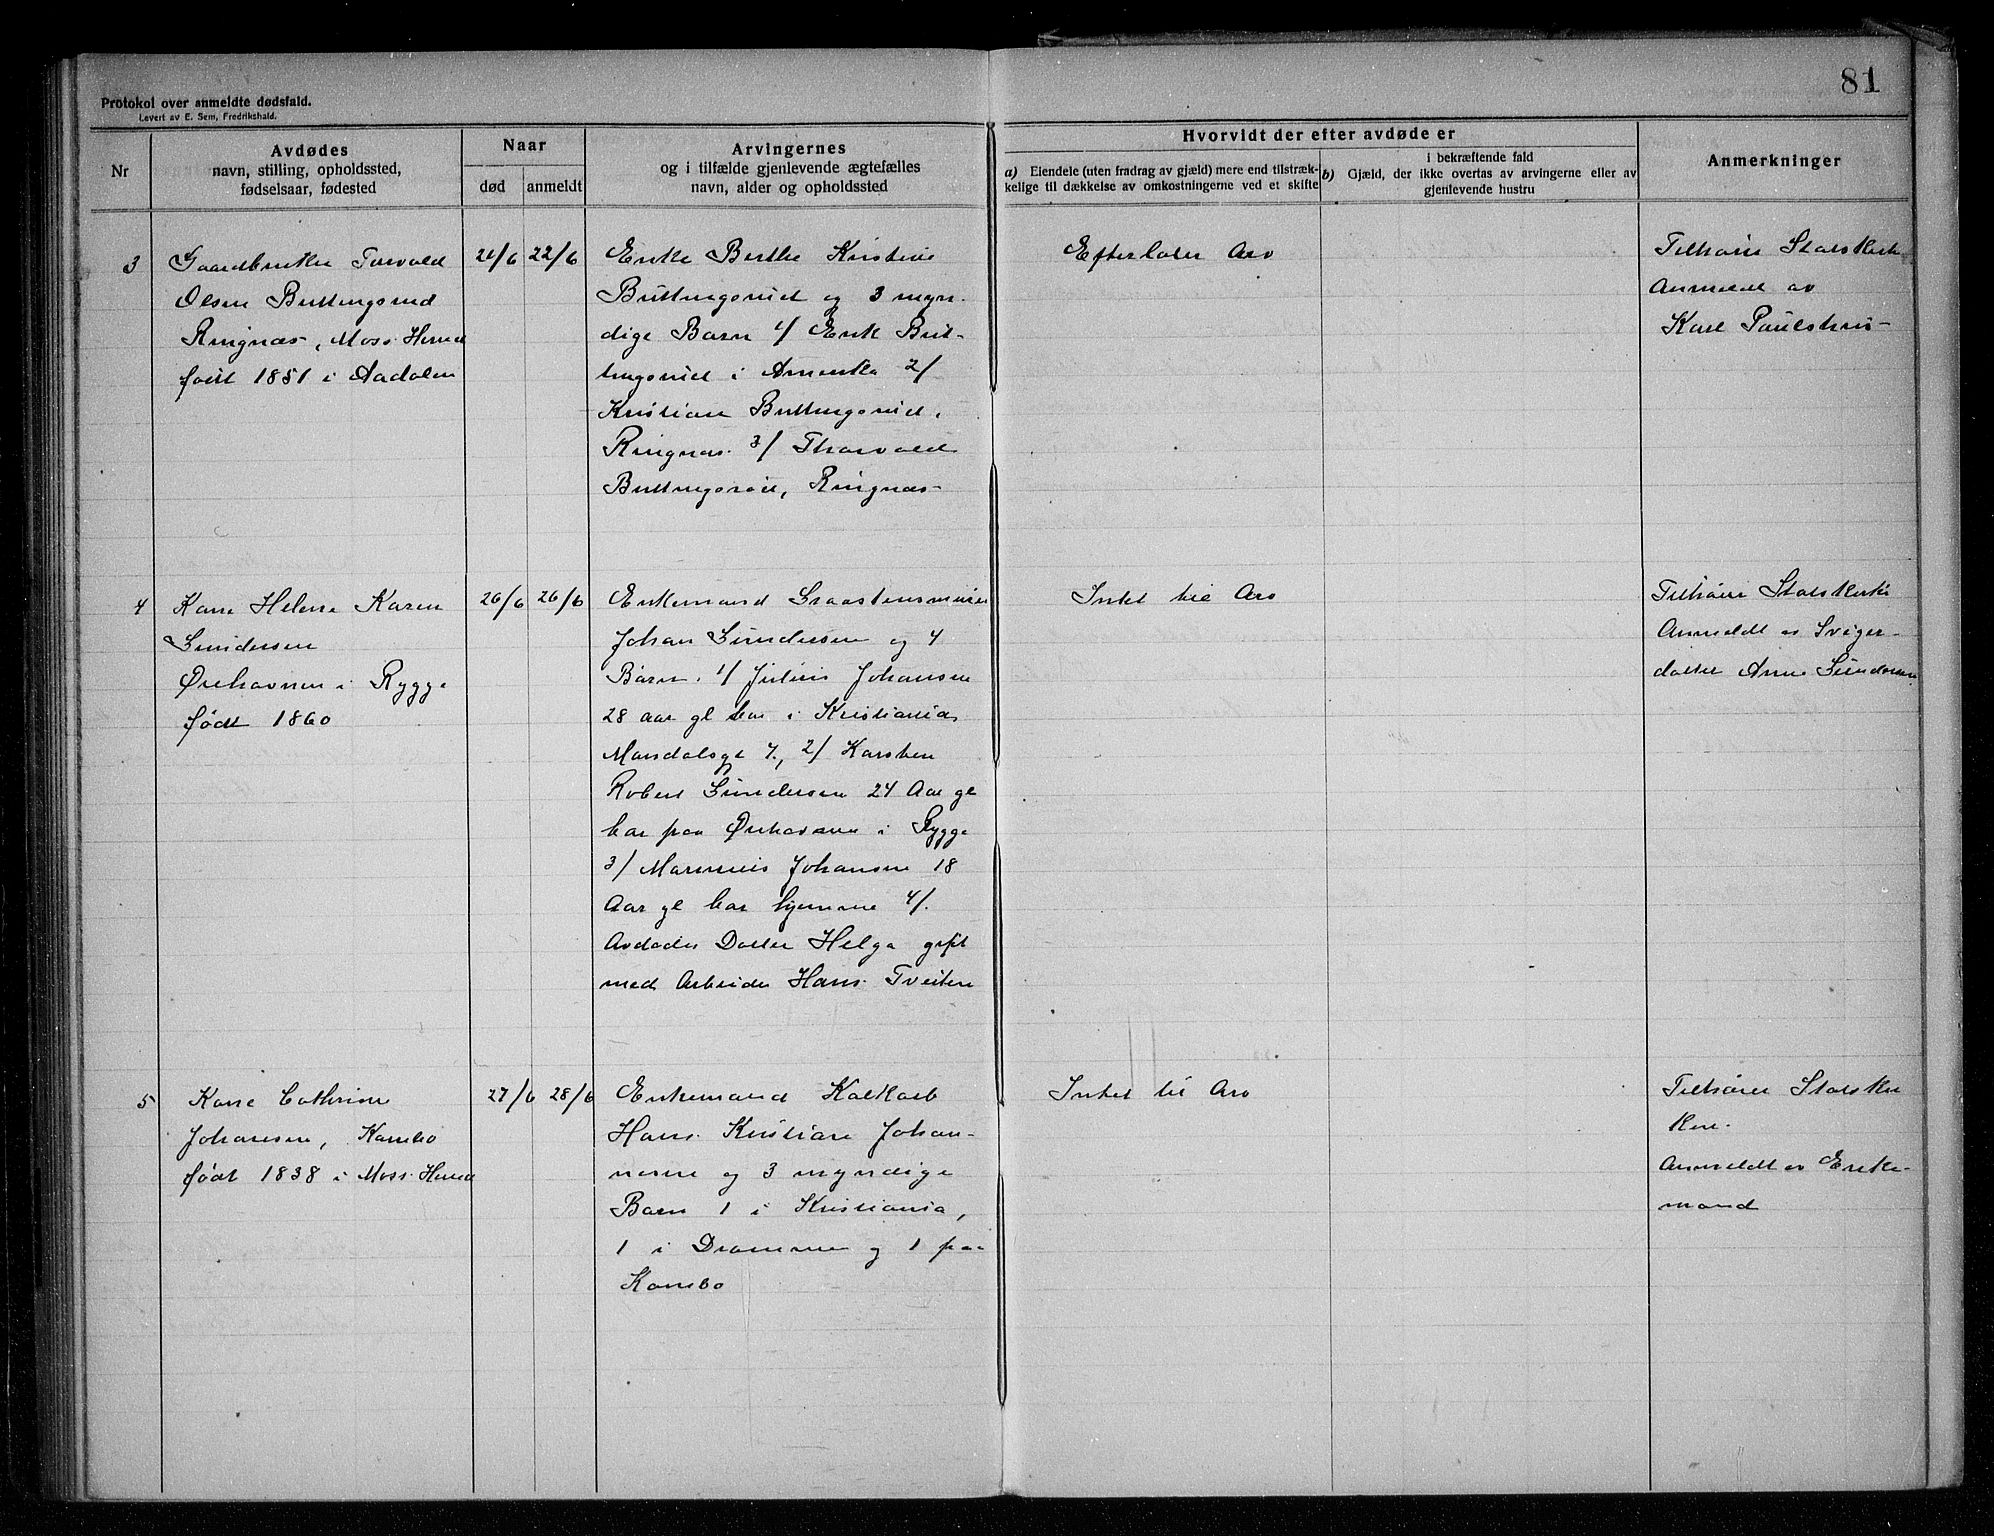 81
Protokol over anmeldte dødsfald.
Levert av E. Sem, Fredrikshald.
Nr
Avdødes
navn, stilling, opholdssted,
fødselsaar, fødested
Naar
død
anmeldt
Arvingernes
og i tilfælde gjenlevende ægtefælles
navn, alder og opholdssted
Hvorvidt der efter avdøde er
a) Eiendele (uten fradrag av gjæld) mere end tilstræk-
kelige til dækkelse av omkostningerne ved et skifte
i bekræftende fald
b) Gjæld, der ikke overtas av arvingerne eller av
gjenlevende hustru
Anmerkninger
3
Gaardbruker Torvald
Olsen Buttingsrud
Ringnæs, Moss Herred
født 1851 i Aadalen
22/6
Enke Berthe Kristine
Buttingsrud og 3 myn-
dige Barn 1/ Enk But-
tingsrud i Amerika 2/
Kristian Buttingsrud,
Ringnæs. 3/ Thorvald
Buttingsrud, Ringnæs-
Efterlater Arv
Tilhører Statskirke
Anmeldt av
Karl Paulshus-
4
Karen
Gundersen
Ørehavnen i Rygge
født 1860
26/6
26/6
Enkemand Graastensmurer
Johan Gundersen og 4
Barn. 1/ Julius Johansen
28 aar gl bor i Kristiania
Mandalsgt 7., 2/ Karsten
Robert Gundersen 24 Aar gl
bor paa Ørehavnen i Rygge
3/ Marinius Johansen 18
Aar gl bor hjemme 4/.
Avdødes Datter Helga gift
med Arbeider Hans Tveiten
Intet til Arv
Tilhører Statskirke
Anmeldt av Sviger-
datter Anna Gundersen
5
Karen Cathrine
Johansen, Kambo
født 1838 i Moss Herred
27/6
28/6
Enkemand
Hans Kristian Johan-
nesen og 3 myndige
Barn 1 i Kristiania,
1 i Drammen og 1 paa
Kambo
Intet til Arv
Tilhører Statskir
ken.
Anmeldt av Enke-
mand